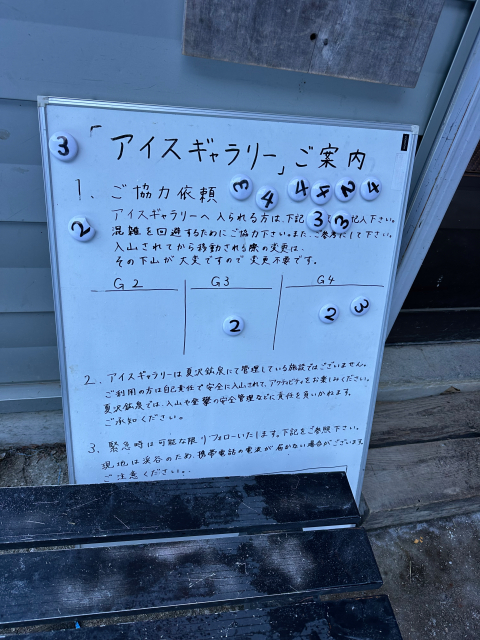 「アイスギャラリー」ご案内
3
1、ご協力依頼 3 4 4 4 2 4
アイスギャラリーへ入られる方は、下記 記入下さい。
3 3
2
混雑を回避するためにご協力下さい。また、ご参考にして下さい。
入山されてから移動される際の変更は、
その下山が大変ですので変更不要です。
G2 G3 G4
2 2 3
2、アイスギャラリーは夏沢鉱泉にて管理している施設ではございません。
ご利用の方は自己責任で安全に入山されて、アクティビティをお楽しみください。
夏沢鉱泉では、入山や登攀の安全管理などに責任を負いかねます。
ご承知ください。
3、緊急時は可能な限りフォローいたします。下記をご参照下さい。
現地は渓谷のため、携帯電話の電波が届かない場合がございます。
ご注意ください。